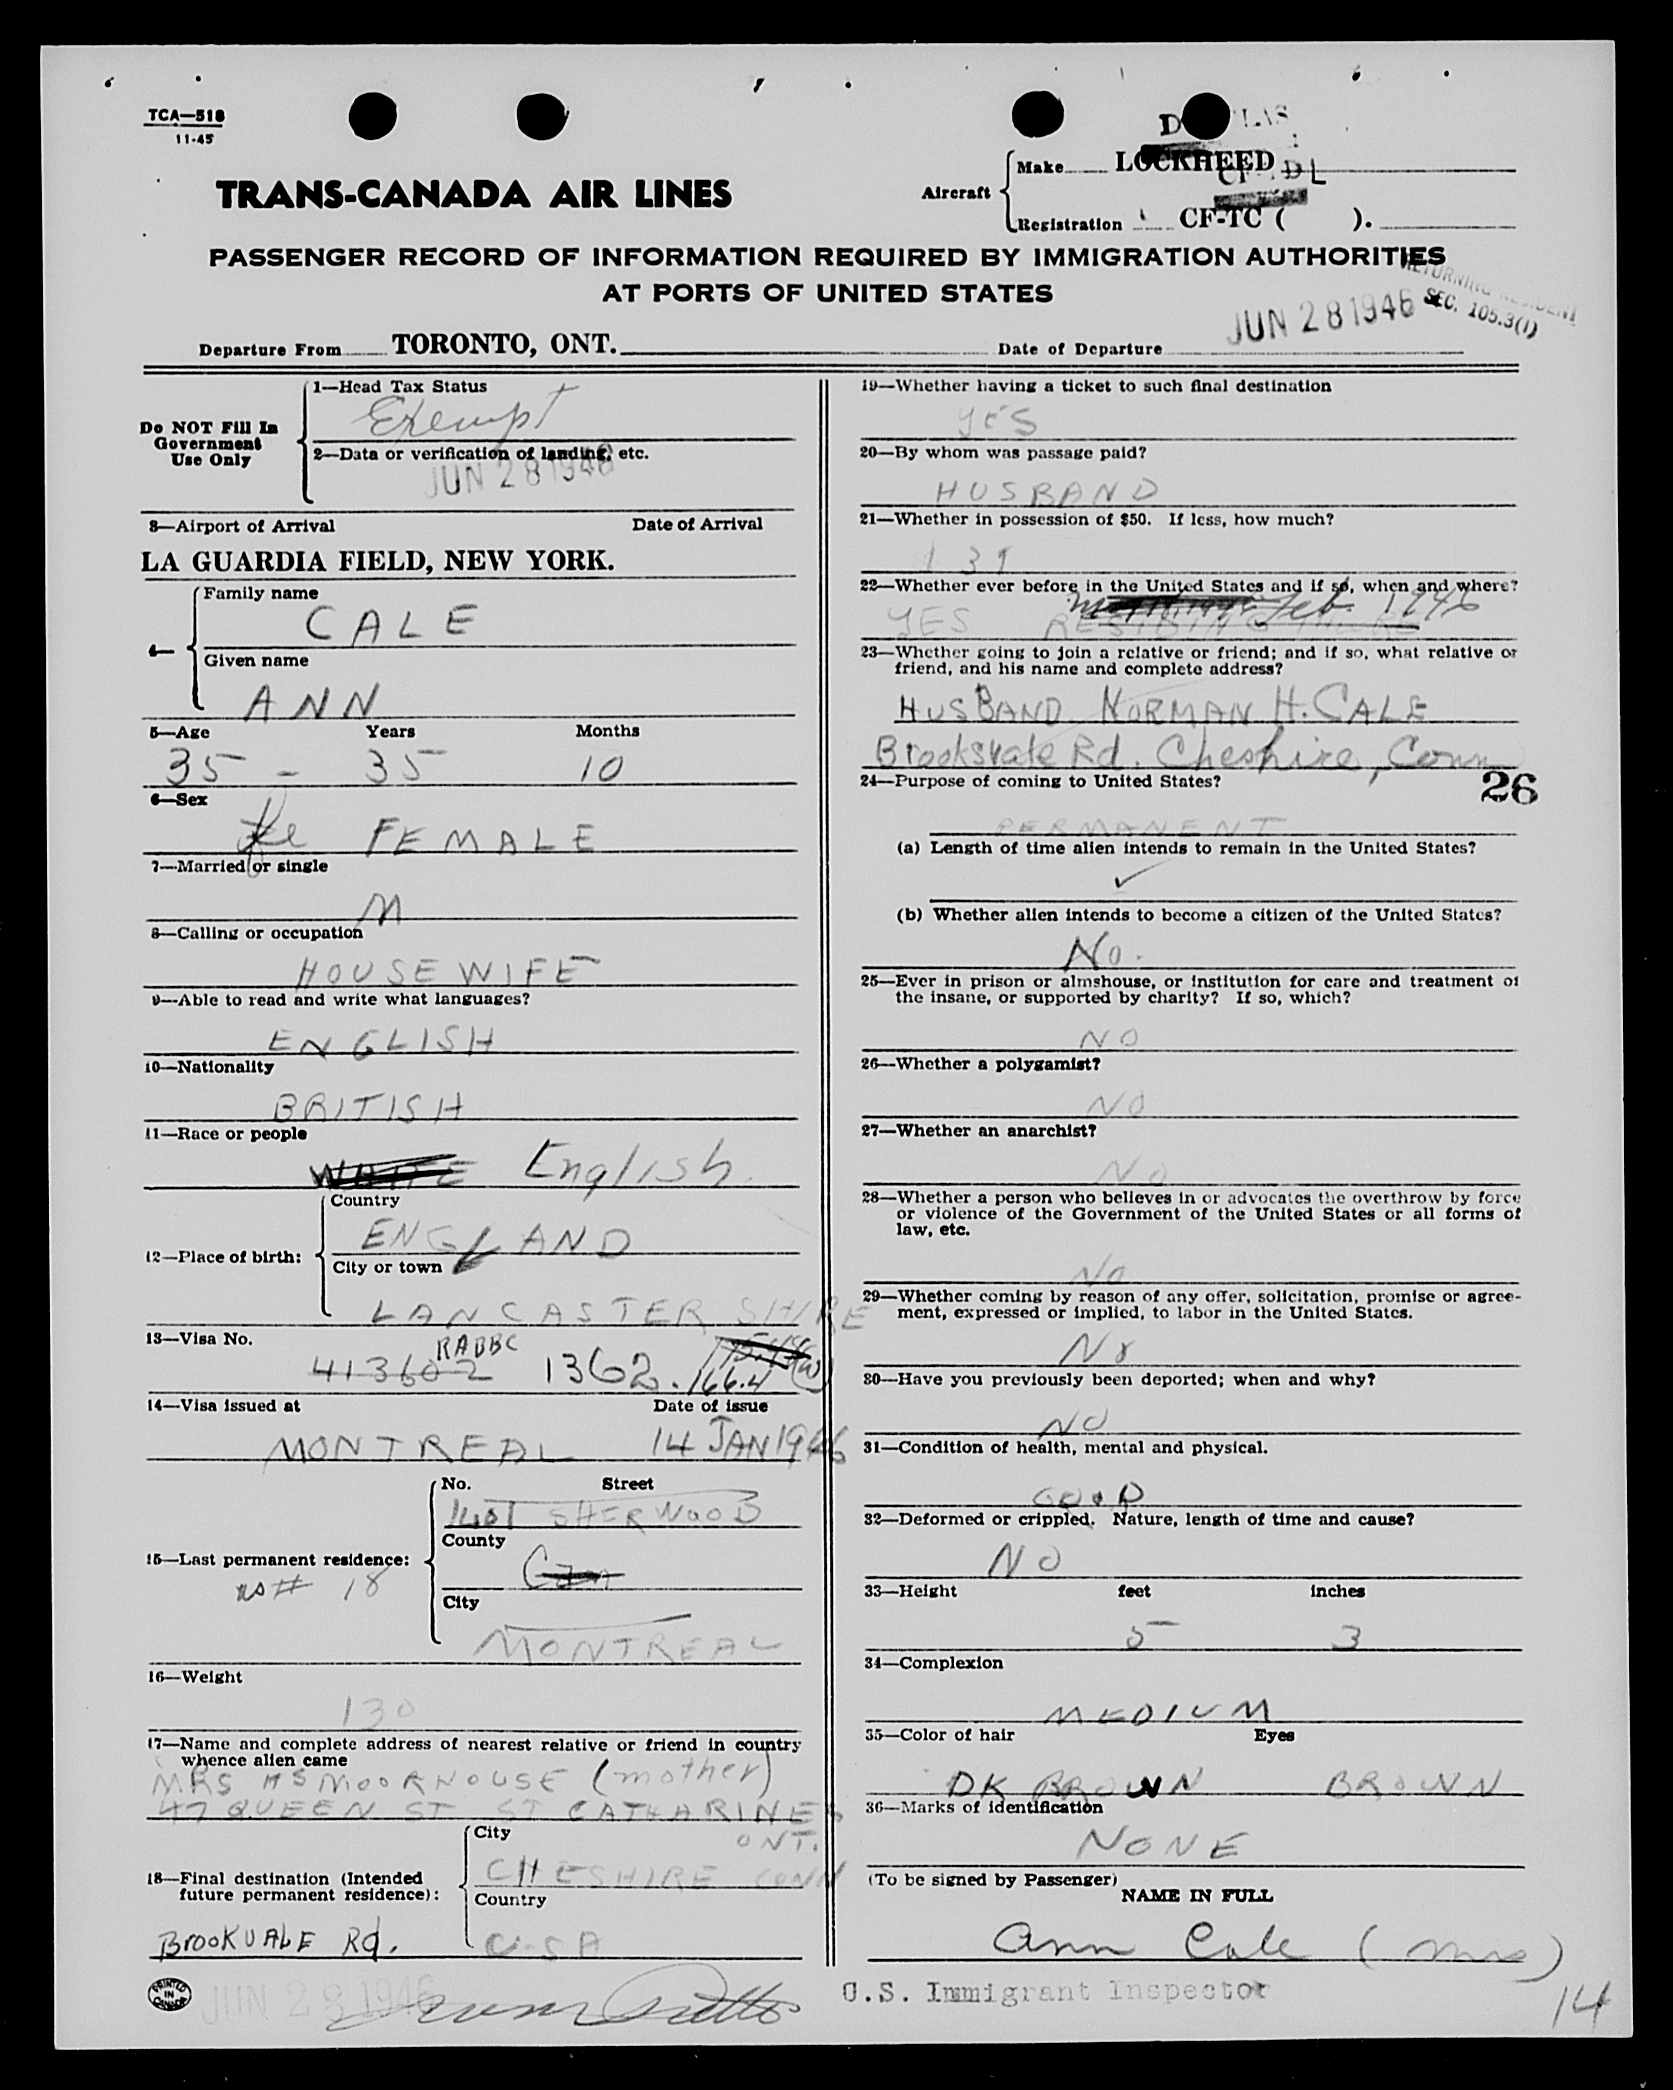 TCA—518
11-45
TRANS-CANADA AIR LINES
Aircraft
Make LOCKHEED
Registration CF-TC ( ).
PASSENGER RECORD OF INFORMATION REQUIRED BY IMMIGRATION AUTHORITIES
AT PORTS OF UNITED STATES
RETURNING RESIDENT
SEC. 105.3(1)
Departure From TORONTO, ONT. Date of Departure JUN 28 1946
Do NOT Fill In
Government
Use Only
1—Head Tax Status
Exempt
2—Data or verification of landing, etc.
JUN 28 1946
3—Airport of Arrival Date of Arrival
LA GUARDIA FIELD, NEW YORK.
4—
Family name
CALE
Given name
ANN
5—Age Years Months
35 - 35 10
6—Sex
Fe FEMALE
7—Married or single
M
8—Calling or occupation
HOUSEWIFE
9—Able to read and write what languages?
ENGLISH
10—Nationality
BRITISH
11—Race or people
WHITE English
12—Place of birth:
Country
ENGLAND
City or town
LANCASTER SHIRE
13—Visa No.
413602 1362. 166.4
14—Visa issued at Date of issue
MONTREAL 14 JAN 1946
15—Last permanent residence:
No. Street
1401 SHERWOOD
County
Can
18
City
MONTREAL
16—Weight
130
17—Name and complete address of nearest relative or friend in country
whence alien came
MRS HS MOORHOUSE (mother)
47 QUEEN ST ST CATHARINES
ONT.
18—Final destination (Intended
future permanent residence):
City
CHESHIRE CONN
Country
BROOKVALE Rd. U-SA
PRINTED
IN
CANADA
JUN 28 1946
19—Whether having a ticket to such final destination
YES
20—By whom was passage paid?
HUSBAND
21—Whether in possession of $50. If less, how much?
22—Whether ever before in the United States and if so, when and where?
Feb. 1946
YES RESIDING THERE
23—Whether going to join a relative or friend; and if so, what relative or
friend, and his name and complete address?
HUSBAND NORMAN H. CALE
Brooksvale Rd. Cheshire, Conn
24—Purpose of coming to United States?
26
PERMANENT
(a) Length of time alien intends to remain in the United States?
✓
(b) Whether alien intends to become a citizen of the United States?
No.
25—Ever in prison or almshouse, or institution for care and treatment of
the insane, or supported by charity? If so, which?
NO
26—Whether a polygamist?
NO
27—Whether an anarchist?
NO
28—Whether a person who believes in or advocates the overthrow by force
or violence of the Government of the United States or all forms of
law, etc.
NO
29—Whether coming by reason of any offer, solicitation, promise or agree-
ment, expressed or implied, to labor in the United States.
No
30—Have you previously been deported; when and why?
NO
31—Condition of health, mental and physical.
GOOD
32—Deformed or crippled. Nature, length of time and cause?
NO
33—Height feet inches
5 3
34—Complexion
MEDIUM
35—Color of hair Eyes
DK BROWN BROWN
36—Marks of identification
NONE
(To be signed by Passenger)
NAME IN FULL
Ann Cale (Mrs)
U.S. Immigrant Inspector
14